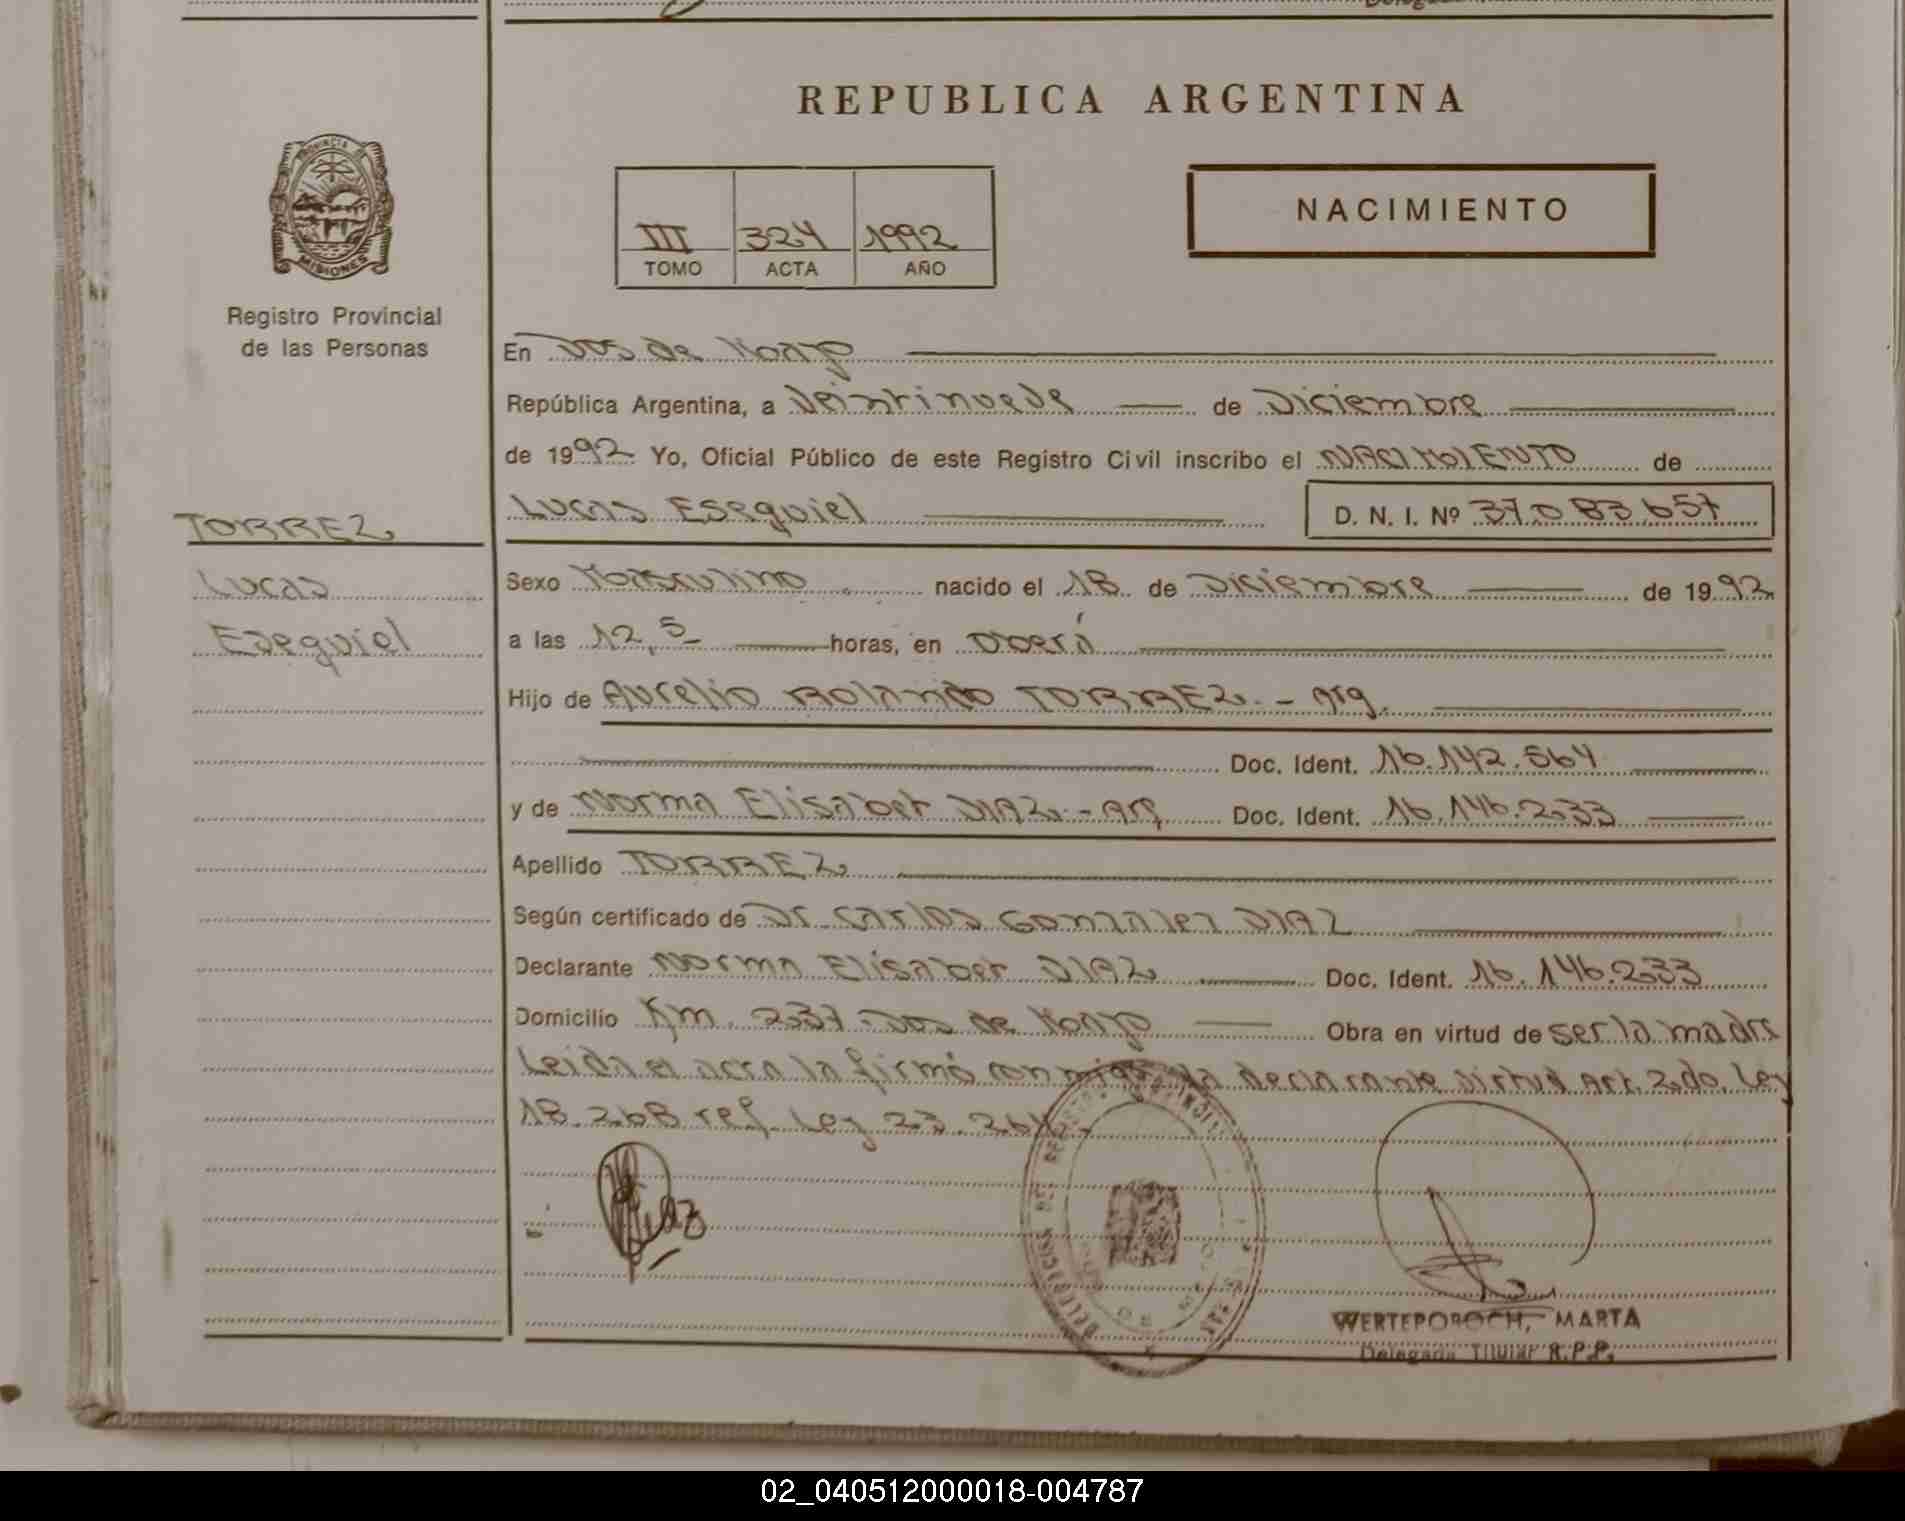 REPUBLICA ARGENTINA
PROVINCIA DE
MISIONES
Registro Provincial
de las Personas
III 324 1992
TOMO ACTA AÑO
NACIMIENTO
En Dos de Mayo
República Argentina, a Veintinueve de Diciembre
de 1992 Yo, Oficial Público de este Registro Civil inscribo el NACIMIENTO de
Lucas Esequiel D. N. I. Nº 37.083.657
TORREZ
Lucas
Esequiel
Sexo Masculino nacido el 18 de Diciembre de 1992
a las 12,5 horas, en Oberá
Hijo de Aurelio Rolando TORREZ.- Arg.
Doc. Ident. 16.142.564
y de Norma Elisabet DIAZ.- Arg Doc. Ident. 16.146.233
Apellido TORREZ
Según certificado de Dr. Carlos Gonzalez DIAZ
Declarante Norma Elisabet DIAZ Doc. Ident. 16.146.233
Domicilio Km. 237 Dos de Mayo Obra en virtud de ser la madre
Leida el acta la firmó conmigo la declarante virtud Art. 2do. Ley
18.268 ref. Ley 23.264.-
Diaz
WERTEPOROCH, MARTA
Delegada Titular R.P.P.
02_040512000018-004787